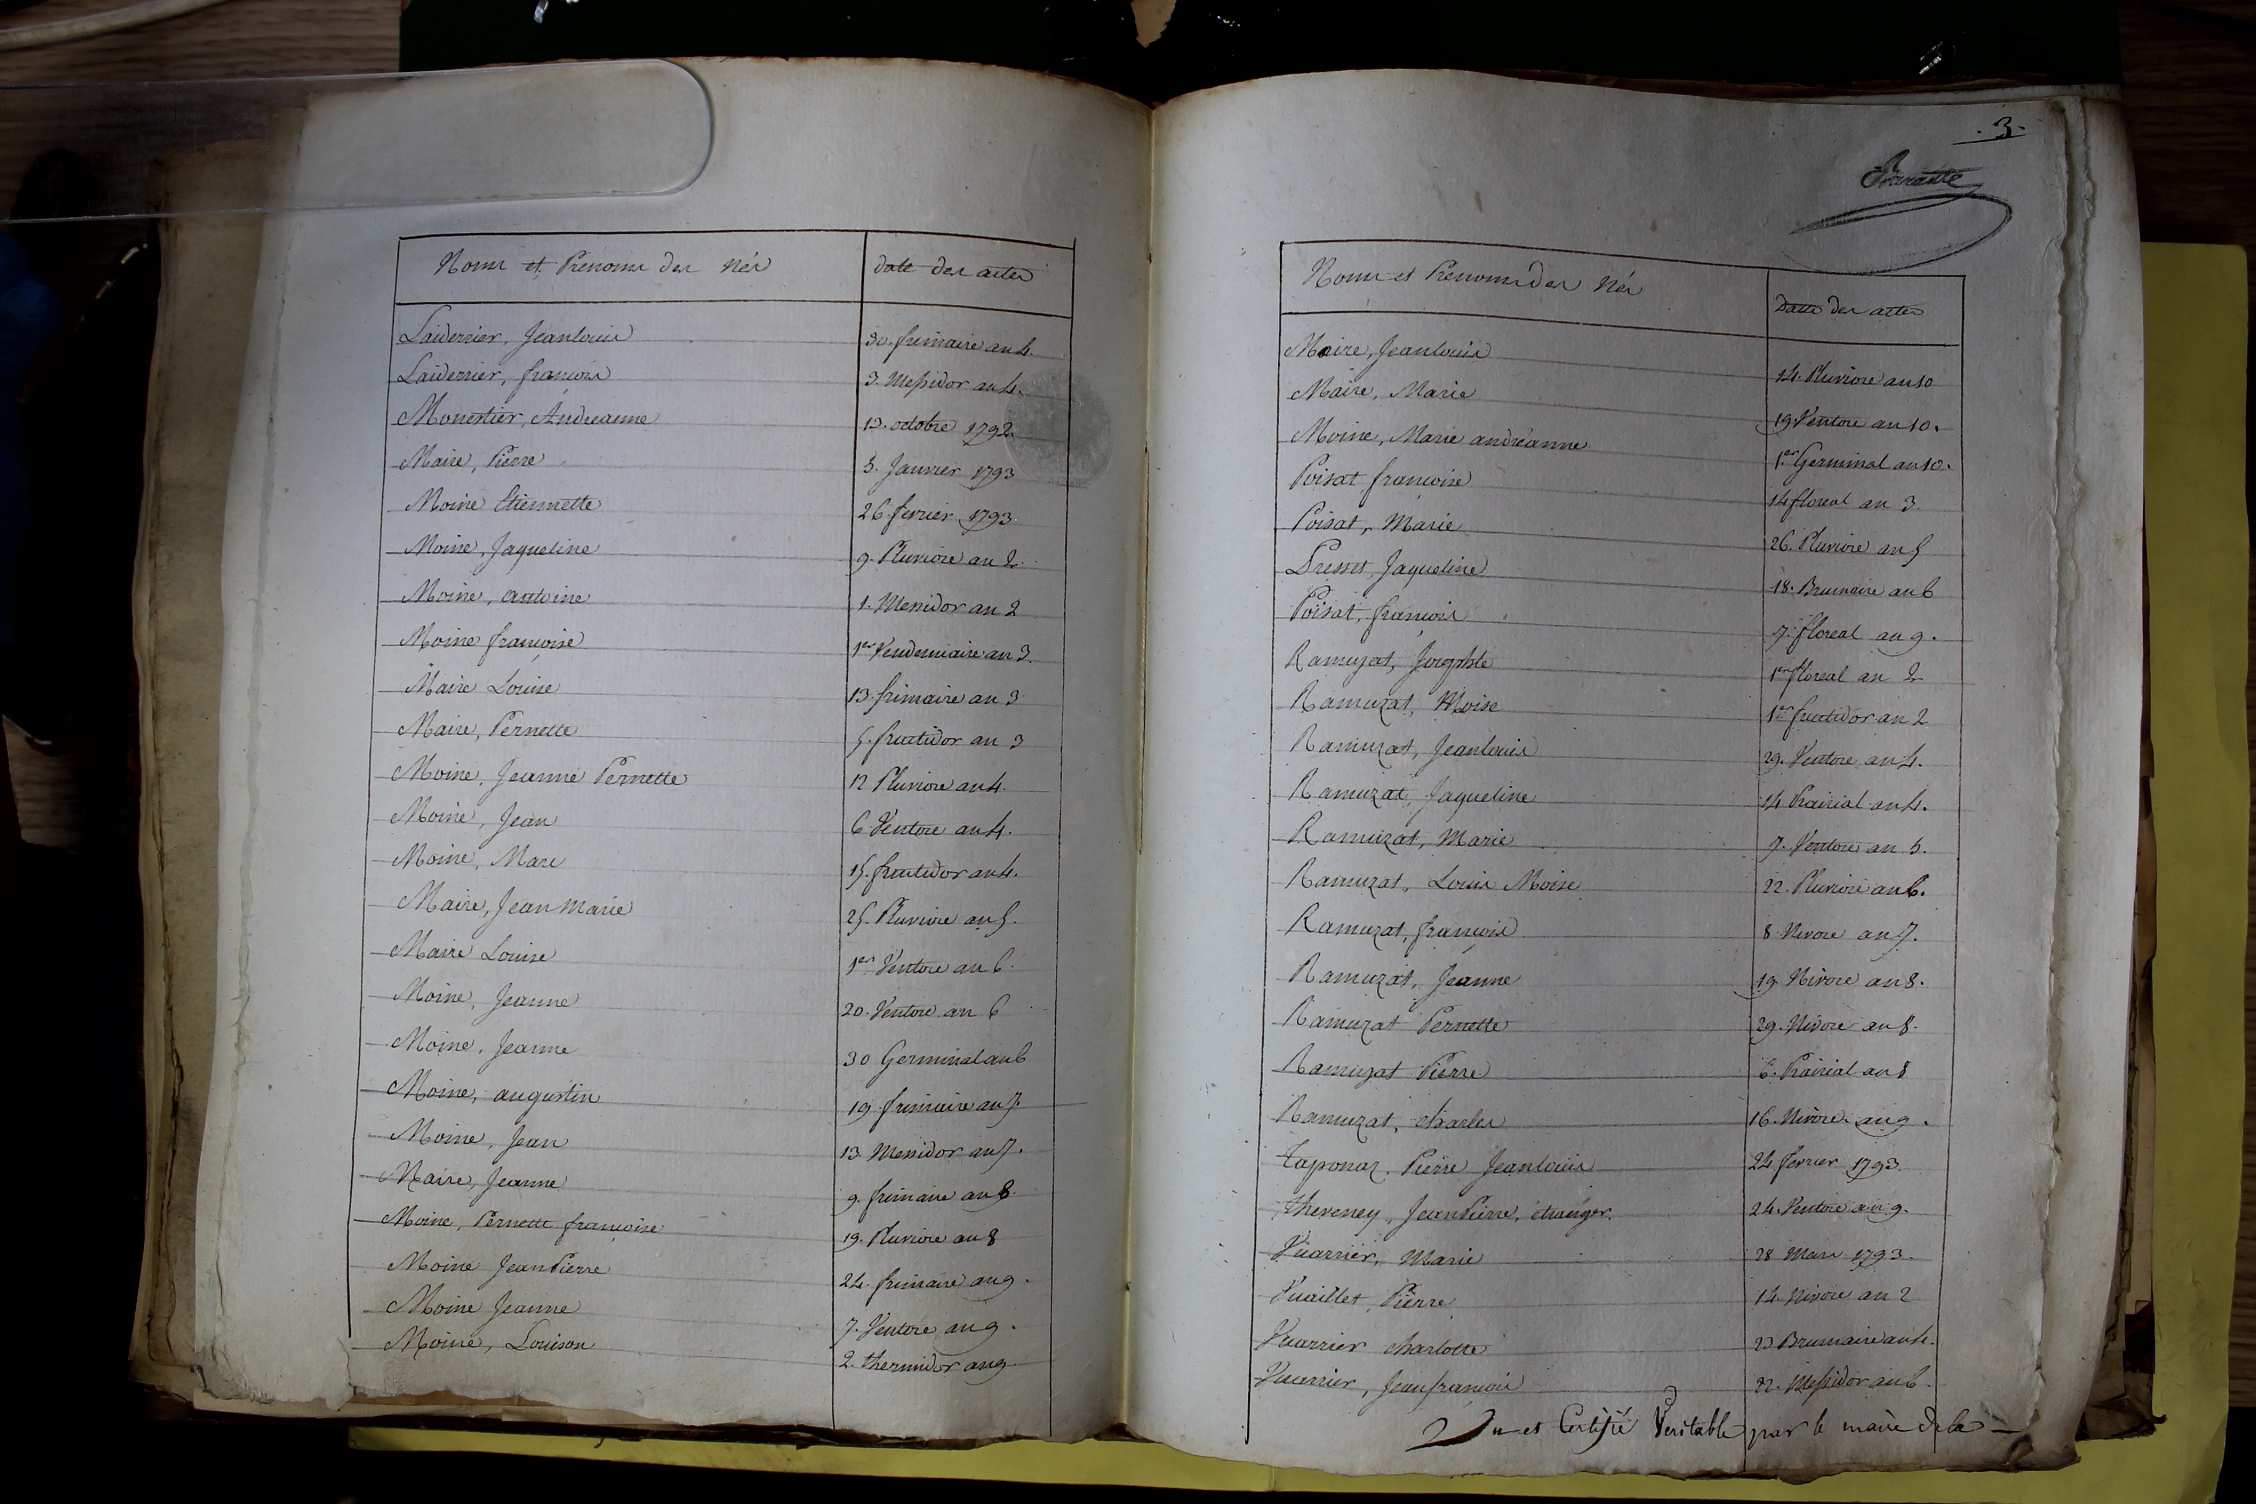 Noms et Prenoms des Nés | date des actes
Laiderrier, Jeanlouis | 30. frimaire an 4.
Laiderrier, francois | 3. Messidor an 4.
Monestier, Andreanne | 13. octobre 1792.
Maire, Pierre | 5. Janvier 1793
Moine Etiennette | 26. fevrier 1793.
Moine, Jaqueline | 9. Pluviose an 2.
Moine, antoine | 1. Messidor an 2
Moine francoise | 1er Vendemiaire an 3.
Maire Louise | 13. frimaire an 3
Maire, Pernette | 5. fructidor an 3
Moine, Jeanne Pernette | 12 Pluviose an 4.
Moine, Jean | 6 Ventose an 4.
Moine, Marc | 15. fructidor an 4.
Maire, Jean Marie | 25. Pluviose an 5.
Maire Louise | 1er Ventose an 6.
Moine, Jeanne | 20. Ventose an 6
Moine, Jeanne | 30 Germinal an 6
Moine, augustin | 19 frimaire an 7.
Moine, Jean | 13 Messidor an 7.
Maire, Jeanne | 9. frimaire an 8.
Moine, Pernette francoise | 19. Pluviose an 8
Moine Jean Pierre | 24. frimaire an 9.
Moine Jeanne | 7. Ventose an 9.
Moine, Louison | 2. thermidor an 9
. 3.
Noms et Prenoms des Nés | Date des actes
Maire, Jeanlouis | 14. Pluviose an 10
Maire, Marie | 19 Ventose an 10.
Moine, Marie andréanne | 1er Germinal an 10.
Poisat francoise | 14 floreal an 3.
Poisat, Marie | 26. Pluviose an 5
Presset, Jaqueline | 18. Brumaire an 6
Poisat, francois | 7. floreal an 9.
Ramuzat, Josephte | 1er floreal an 2
Ramuzat, Moise | 1er fructidor an 2
Ramuzat, Jeanlouis | 29. Ventose an 4.
Ramuzat, Jaqueline | 14 Prairial an 4.
Ramuzat, Marie | 7. Ventose an 5.
Ramuzat, Louis Moise | 22. Pluviose an 6.
Ramuzat, francois | 8 Nivose an 7.
Ramuzat, Jeanne | 19 Nivose an 8.
Ramuzat Pernette | 29. Nivose an 8.
Ramuzat Pierre | 6. Prairial an 8
Ramuzat, charles | 16. Nivose an 9.
Taponaz, Pierre Jeanlouis | 24 fevrier 1793.
Theveney, Jean Pierre, étranger. | 24. Ventose an 9.
Vuarrier, Marie | 28 Mars 1793.
Vuaillet, Pierre | 14. Nivose an 2
Vuarrier charlotte | 23 Brumaire an 4.
Vuarrier, Jean francois | 22. Messidor an 6.
Vu et Certifié Veritable par le maire de la